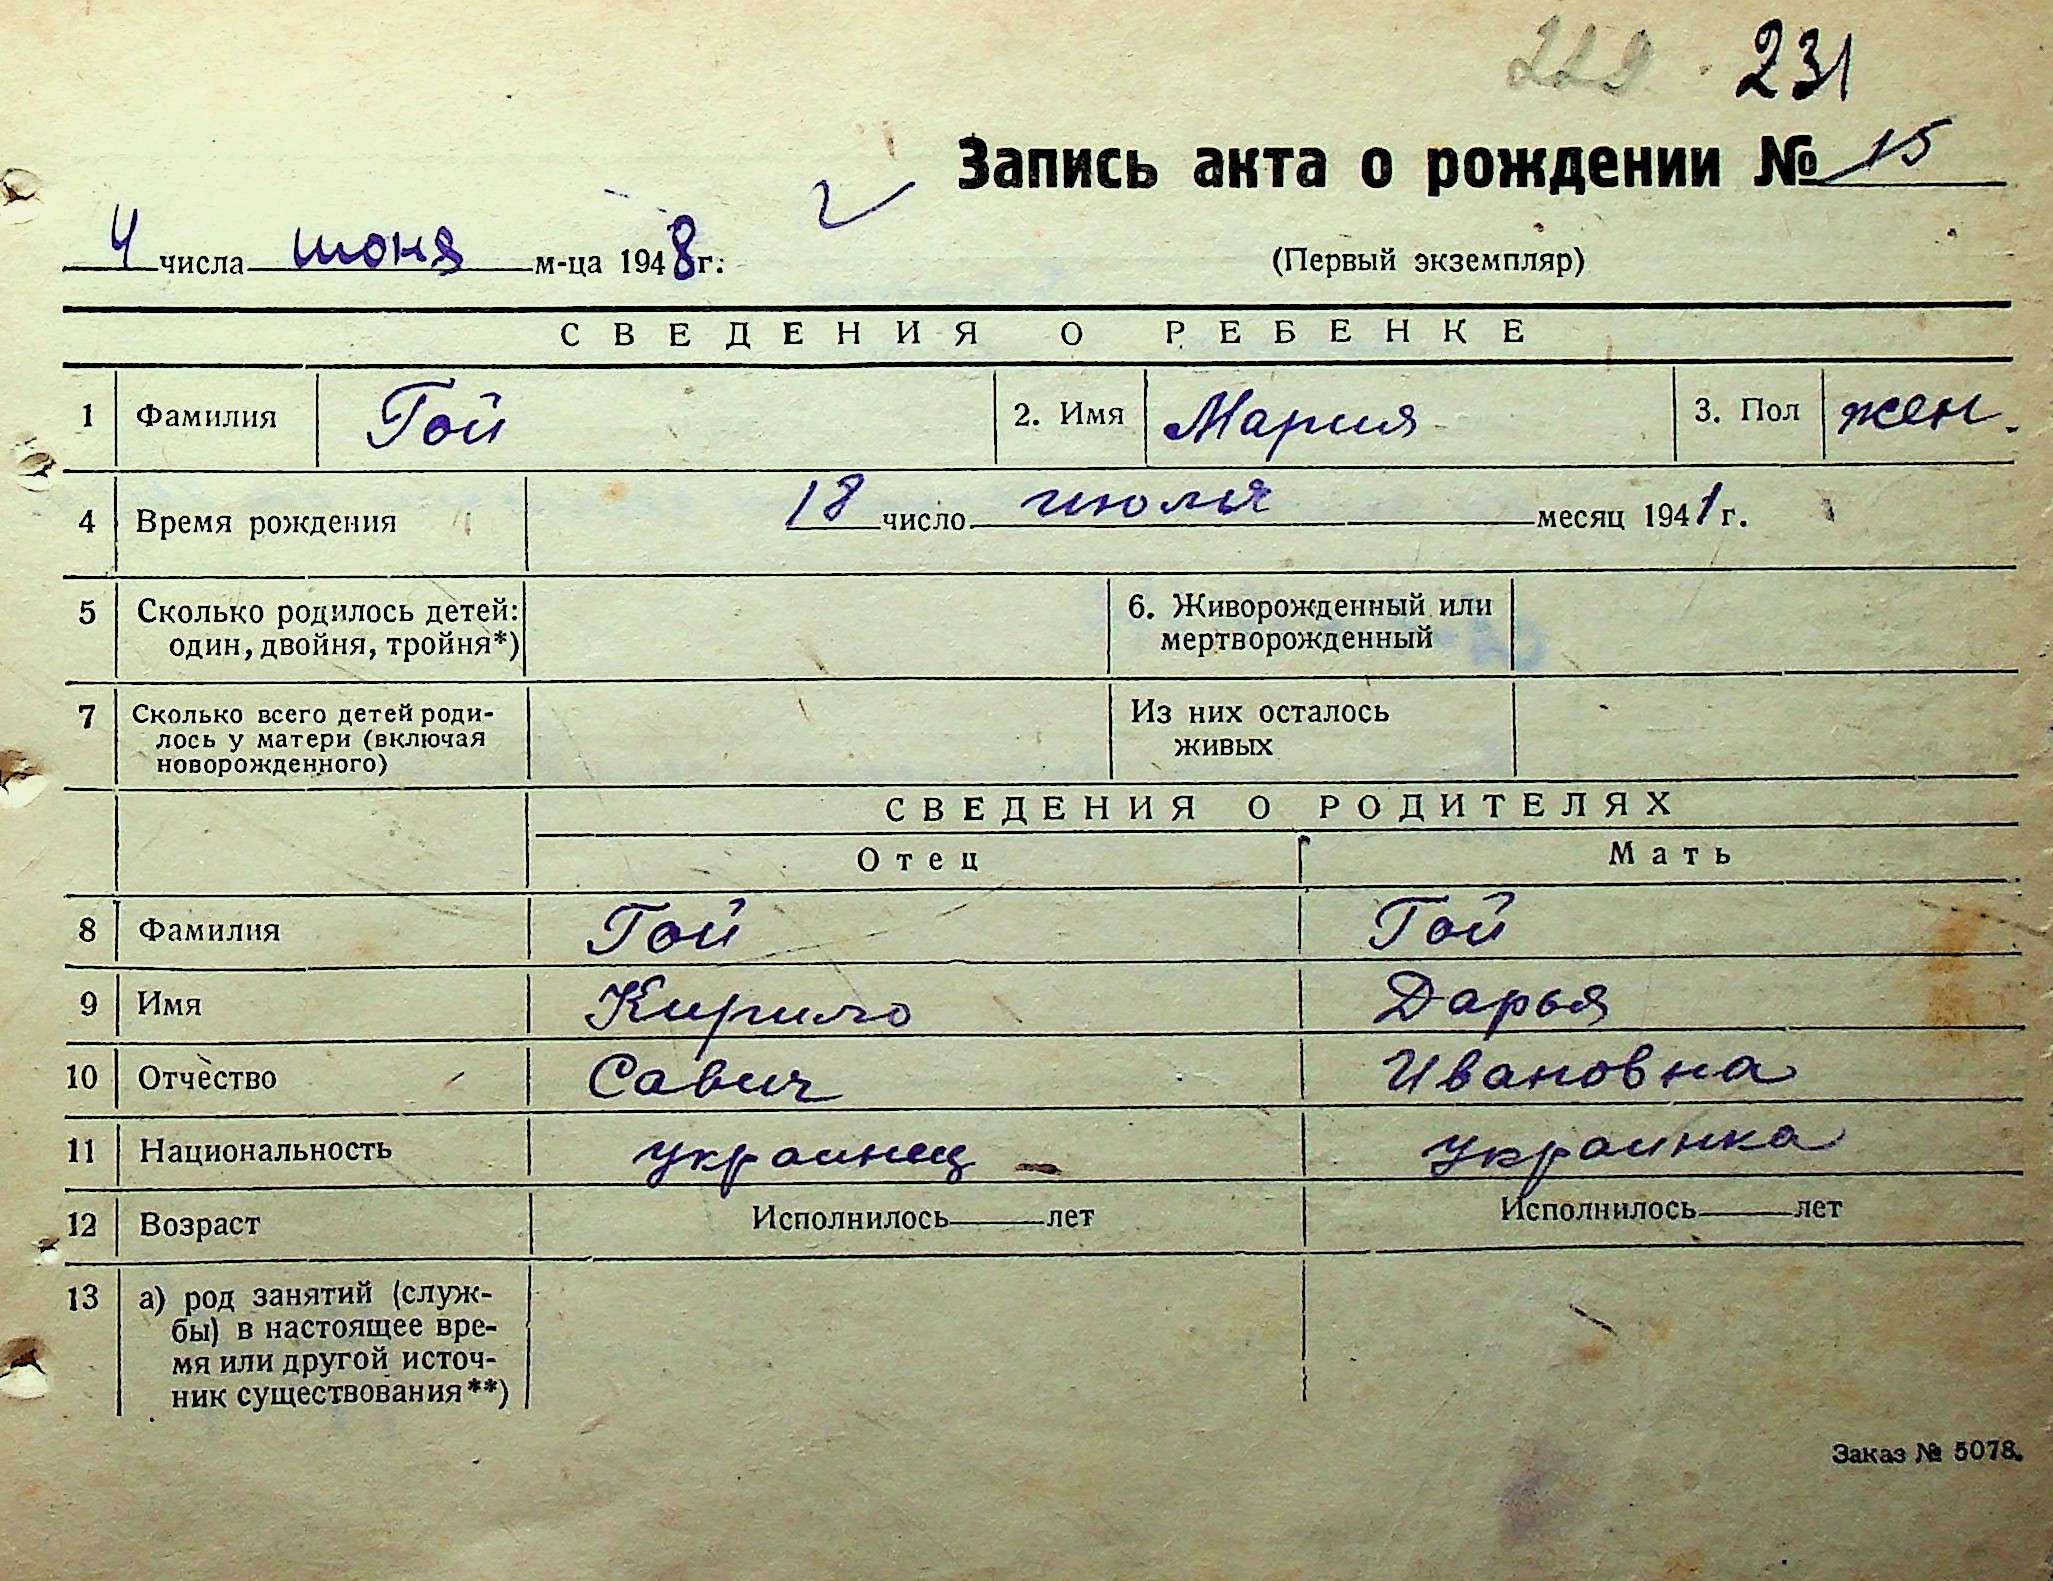 229 231
Запись акта о рождении № 15
4 числа июня м-ца 1948 г.
(Первый экземпляр)
СВЕДЕНИЯ О РЕБЕНКЕ
1 Фамилия Гой 2. Имя Мария 3. Пол жен.
4 Время рождения 18 число июля месяц 1941 г.
5 Сколько родилось детей: 6. Живорожденный или
один, двойня, тройня*) мертворожденный
7 Сколько всего детей роди- Из них осталось
лось у матери (включая живых
новорожденного)
СВЕДЕНИЯ О РОДИТЕЛЯХ
Отец Мать
8 Фамилия Гой Гой
9 Имя Кирило Дарья
10 Отчество Савич Ивановна
11 Национальность украинец украинка
12 Возраст Исполнилось лет Исполнилось лет
13 а) род занятий (служ-
бы) в настоящее вре-
мя или другой источ-
ник существования**)
Заказ № 5078.